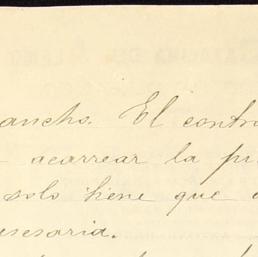 ancho. El contr
acarrear la pr
solo tiene que
esesaria.